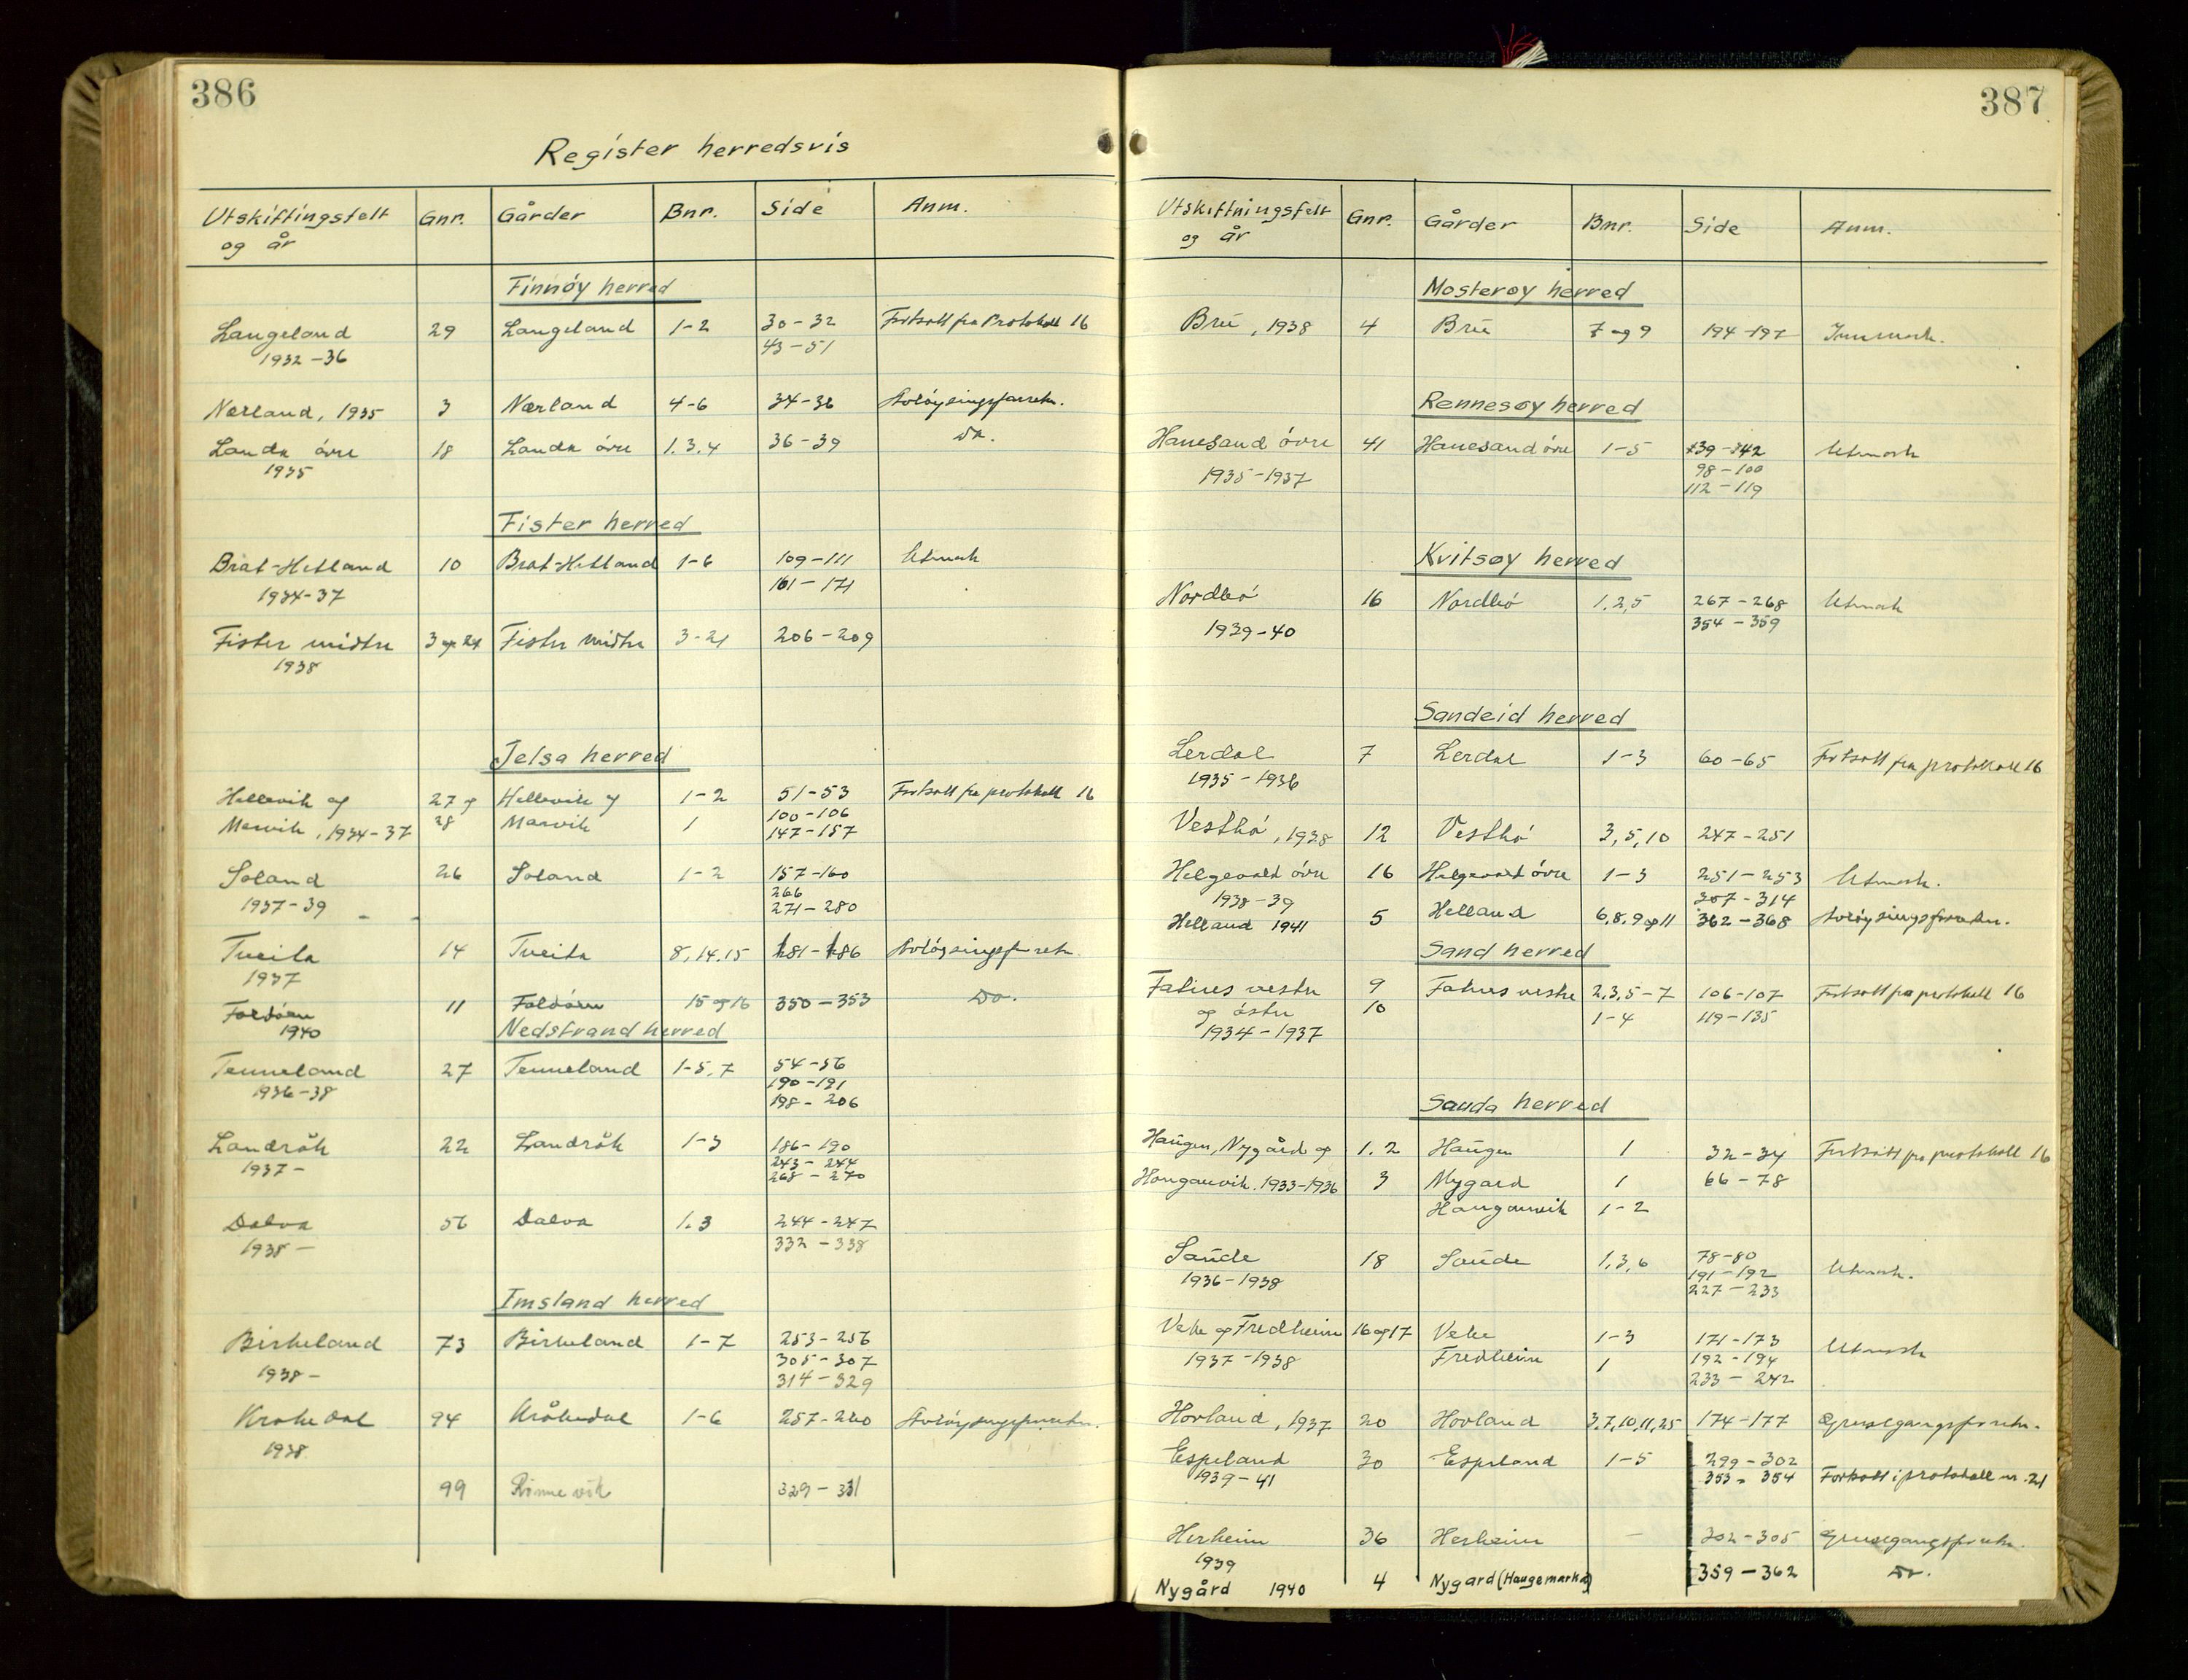 386
Register herredsvis
Utskiftingsfelt og år Gnr. Gårder Bnr. Side Anm.
Finnøy herred
Langeland 29 Langeland 1-2 30-32 Fortsatt fra Protokoll 16
1932-36 43-51
Nærland, 1935 3 Nærland 4-6 34-36 Avløysingsforretn.
Landa övre 18 Landa övre 1.3.4 36-39 Do.
1935
Fister herred
Brat-Hetland 10 Brat-Hetland 1-6 109-111 Utmark
1934-37 161-171
Fister midtre 3 og 24 Fister midtre 3-21 206-209
1938
Jelsa herred
Hellevik og 27 og Hellevik og 1-2 51-53 Fortsatt fra protokoll 16
Marvik, 1934-37 28 Marvik 1 100-106
147-157
Soland 26 Soland 1-2 157-160
1937-39 266
271-280
Tveita 14 Tveita 8,14.15 181-186 Avløysingsforretn.
1937
Foldöen 11 Foldöen 15 og 16 350-353 Do.
1940
Nedstrand herred
Tenneland 27 Tenneland 1-5.7 54-56
1936-38 190-191
198-206
Landråk 22 Landråk 1-3 186-190
1937- 243-244
268-270
Dalva 56 Dalva 1.3 244-247
1938- 332-338
Imsland herred
Birkeland 73 Birkeland 1-7 253-256
1938- 305-307
314-329
Krokedal 94 Kråkedal 1-6 257-260 Avløysingsforretn.
1938
99 329-331
387
Utskiftningsfelt og år Gnr. Gårder Bnr. Side Anm.
Mosterøy herred
Bru, 1938 4 Bru 7 og 9 194-197 Innmark.
Rennesøy herred
Hanesand övre 41 Hanesand övre 1-5 139-142 Utmark
1935-1937 98-100
112-119
Kvitsøy herred
Nordbö 16 Nordbö 1,2,5 267-268 Utmark
1939-40 354-359
Sandeid herred
Lerdal 7 Lerdal 1-3 60-65 Fortsatt fra protokoll 16
1935-1936
Vestbö, 1938 12 Vestbö 3,5,10 247-251
Helgevold övre 16 Helgevold övre 1-3 251-253 Utmark.
1938-39 307-314
Helland 1941 5 Helland 6,8,9 og 11 362-368 Avløysingsforretn.
Sand herred
Fatnes vestre 9 Fatnes vestre 2,3,5-7 106-107 Fortsatt fra protokoll 16
og östre 10 1-4 119-135
1934-1937
Sauda herred
Haugen, Nygård og 1.2 Haugen 1 32-34 Fortsatt fra protokoll 16
Honganvik. 1933-1936 3 Nygard 1 66-78
Honganvik 1-2
Saude 18 Saude 1,3,6 78-80 Utmark.
1936-1938 191-192
227-233
Veke og Fredheim 16 og 17 Veke 1-3 171-173 Utmark
1937-1938 Fredheim 1 192-194
233-242
Hovland, 1937 20 Hovland 3,7,10,11,25 174-177 Grensegangsforretn.
Espeland 30 Espeland 1-5 299-302
1939-41 353-354 Fortsatt i protokoll nr. 21
Herheim 36 Herheim - 302-305 Grensegangsforretn.
1939
Nygård 1940 4 Nygard (Haugemarka) 359-362 Do.